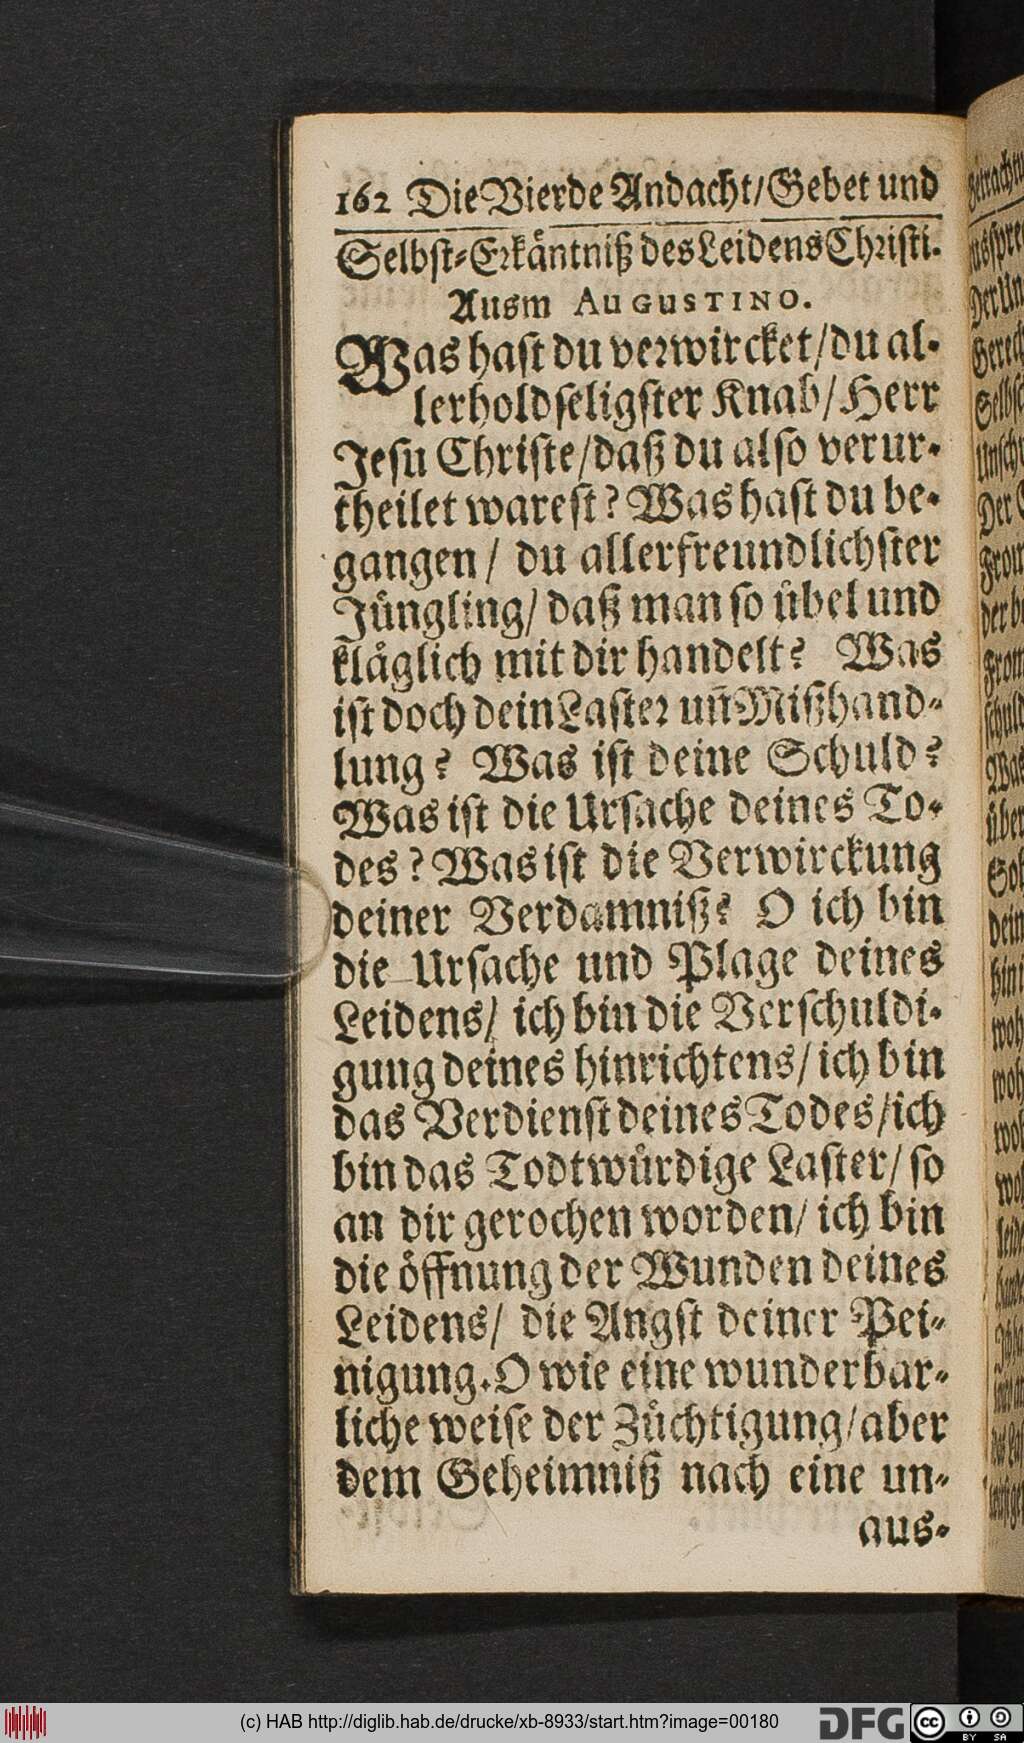 162 Die Vierde Andacht/Gebet und
Selbst-Erkäntniß des Leidens Christi.
Ausm AUGUSTINO.
Was hast du verwircket/du al-
lerholdseligster Knab/Herr
Jesu Christe/daß du also verur-
theilet warest? Was hast du be-
gangen/ du allerfreundlichster
Jüngling/ daß man so übel und
kläglich mit dir handelt? Was
ist doch dein Laster uñ Mißhand-
lung? Was ist deine Schuld?
Was ist die Ursache deines To-
des? Was ist die Verwirckung
deiner Verdamniß? O ich bin
die Ursache und Plage deines
Leidens/ ich bin die Verschuldi-
gung deines hinrichtens/ ich bin
das Verdienst deines Todes/ich
bin das Todtwürdige Laster/ so
an dir gerochen worden/ ich bin
die öffnung der Wunden deines
Leidens/ die Angst deiner Pei-
nigung. O wie eine wunderbar-
liche weise der Züchtigung/aber
dem Geheimniß nach eine un-
aus-
(c) HAB http://diglib.hab.de/drucke/xb-8933/start.htm?image=00180
DFG
cc BY SA